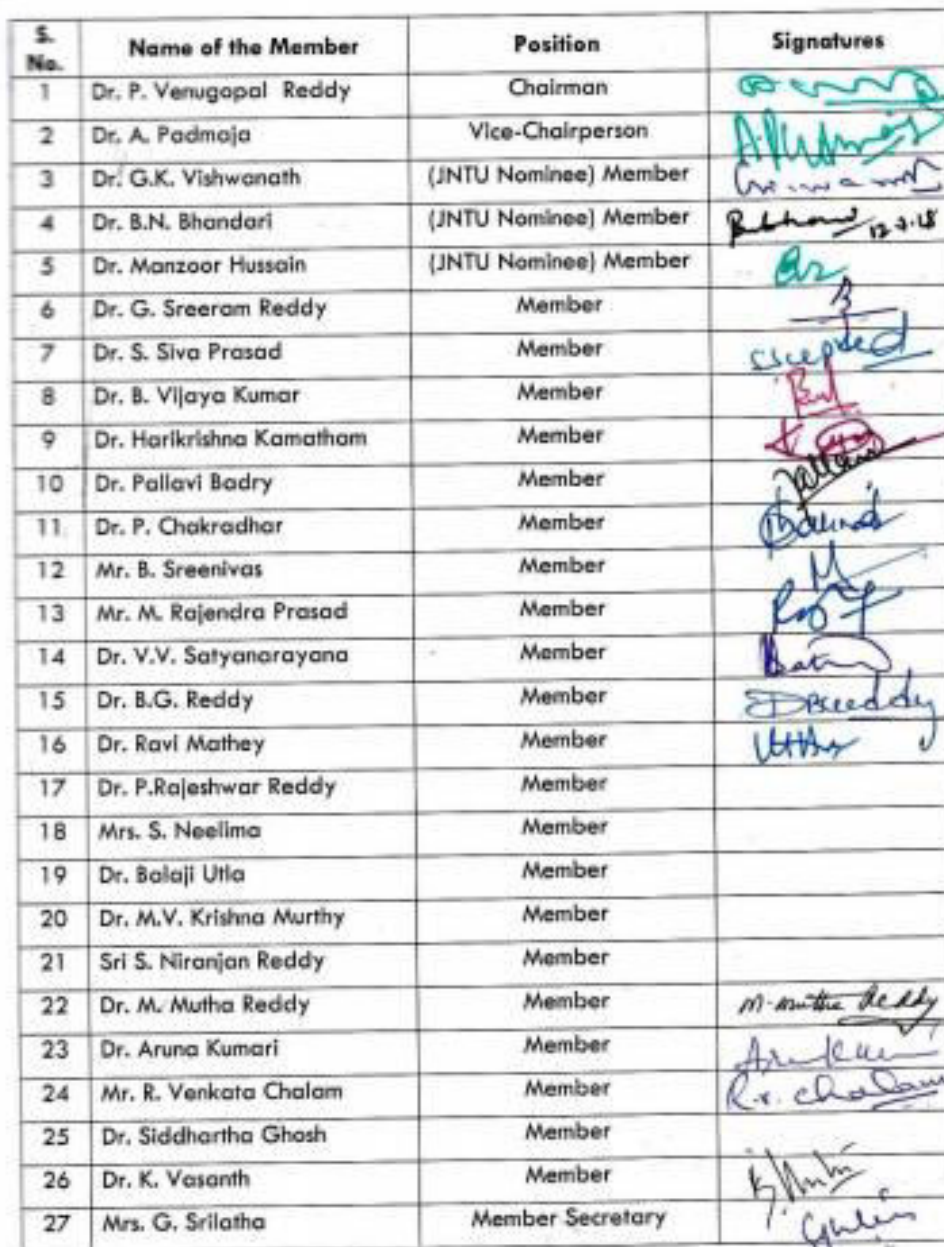 S. No. Name of the Member Position Signatures
1 Dr. P. Venugopal Reddy Chairman
2 Dr. A. Padmaja Vice-Chairperson
3 Dr. G.K. Vishwanath (JNTU Nominee) Member
4 Dr. B.N. Bhandari (JNTU Nominee) Member
5 Dr. Manzoor Hussain (JNTU Nominee) Member
6 Dr. G. Sreeram Reddy Member
7 Dr. S. Siva Prasad Member
8 Dr. B. Vijaya Kumar Member
9 Dr. Harikrishna Kamatham Member
10 Dr. Pallavi Badry Member
11 Dr. P. Chakradhar Member
12 Mr. B. Sreenivas Member
13 Mr. M. Rajendra Prasad Member
14 Dr. V.V. Satyanarayana Member
15 Dr. B.G. Reddy Member
16 Dr. Ravi Mathey Member
17 Dr. P.Rajeshwar Reddy Member
18 Mrs. S. Neelima Member
19 Dr. Balaji Utla Member
20 Dr. M.V. Krishna Murthy Member
21 Sri S. Niranjan Reddy Member
22 Dr. M. Mutha Reddy Member M. Mutha Reddy
23 Dr. Aruna Kumari Member
24 Mr. R. Venkata Chalam Member R.V. Chalam
25 Dr. Siddhartha Ghosh Member
26 Dr. K. Vasanth Member
27 Mrs. G. Srilatha Member Secretary